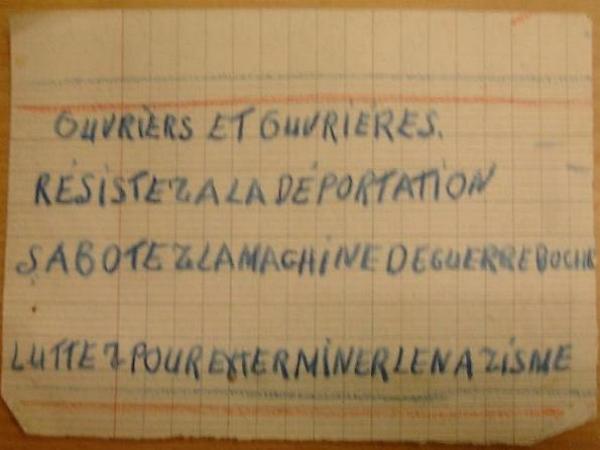 OUVRIÈRS ET OUVRIÉRES.
RÉSISTEZ A LA DÉPORTATION
SABOTEZ LA MACHINE DE GUERRE BOCHE
LUTTEZ POUR EXTERMINER LE NAZISME